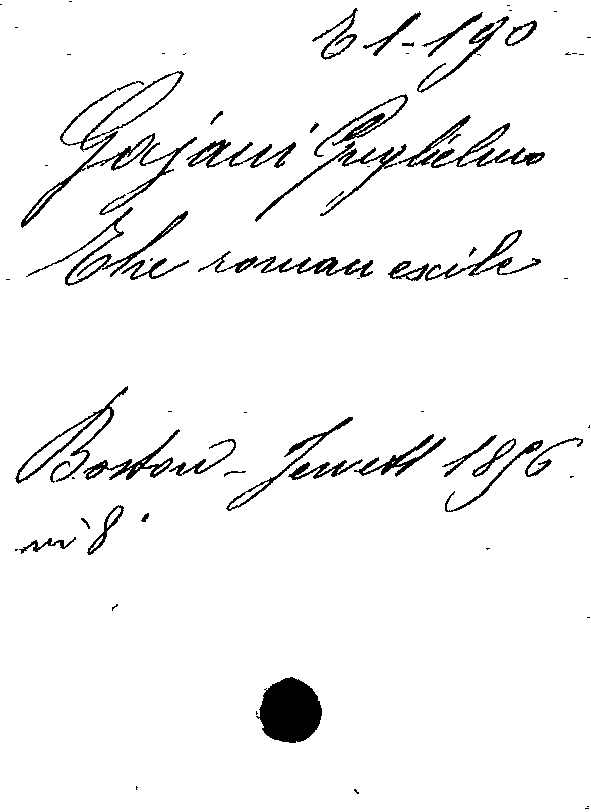 E 1-190
Gajani Guglielmo
The roman exile
Boston - Jewett 1856
in 8°